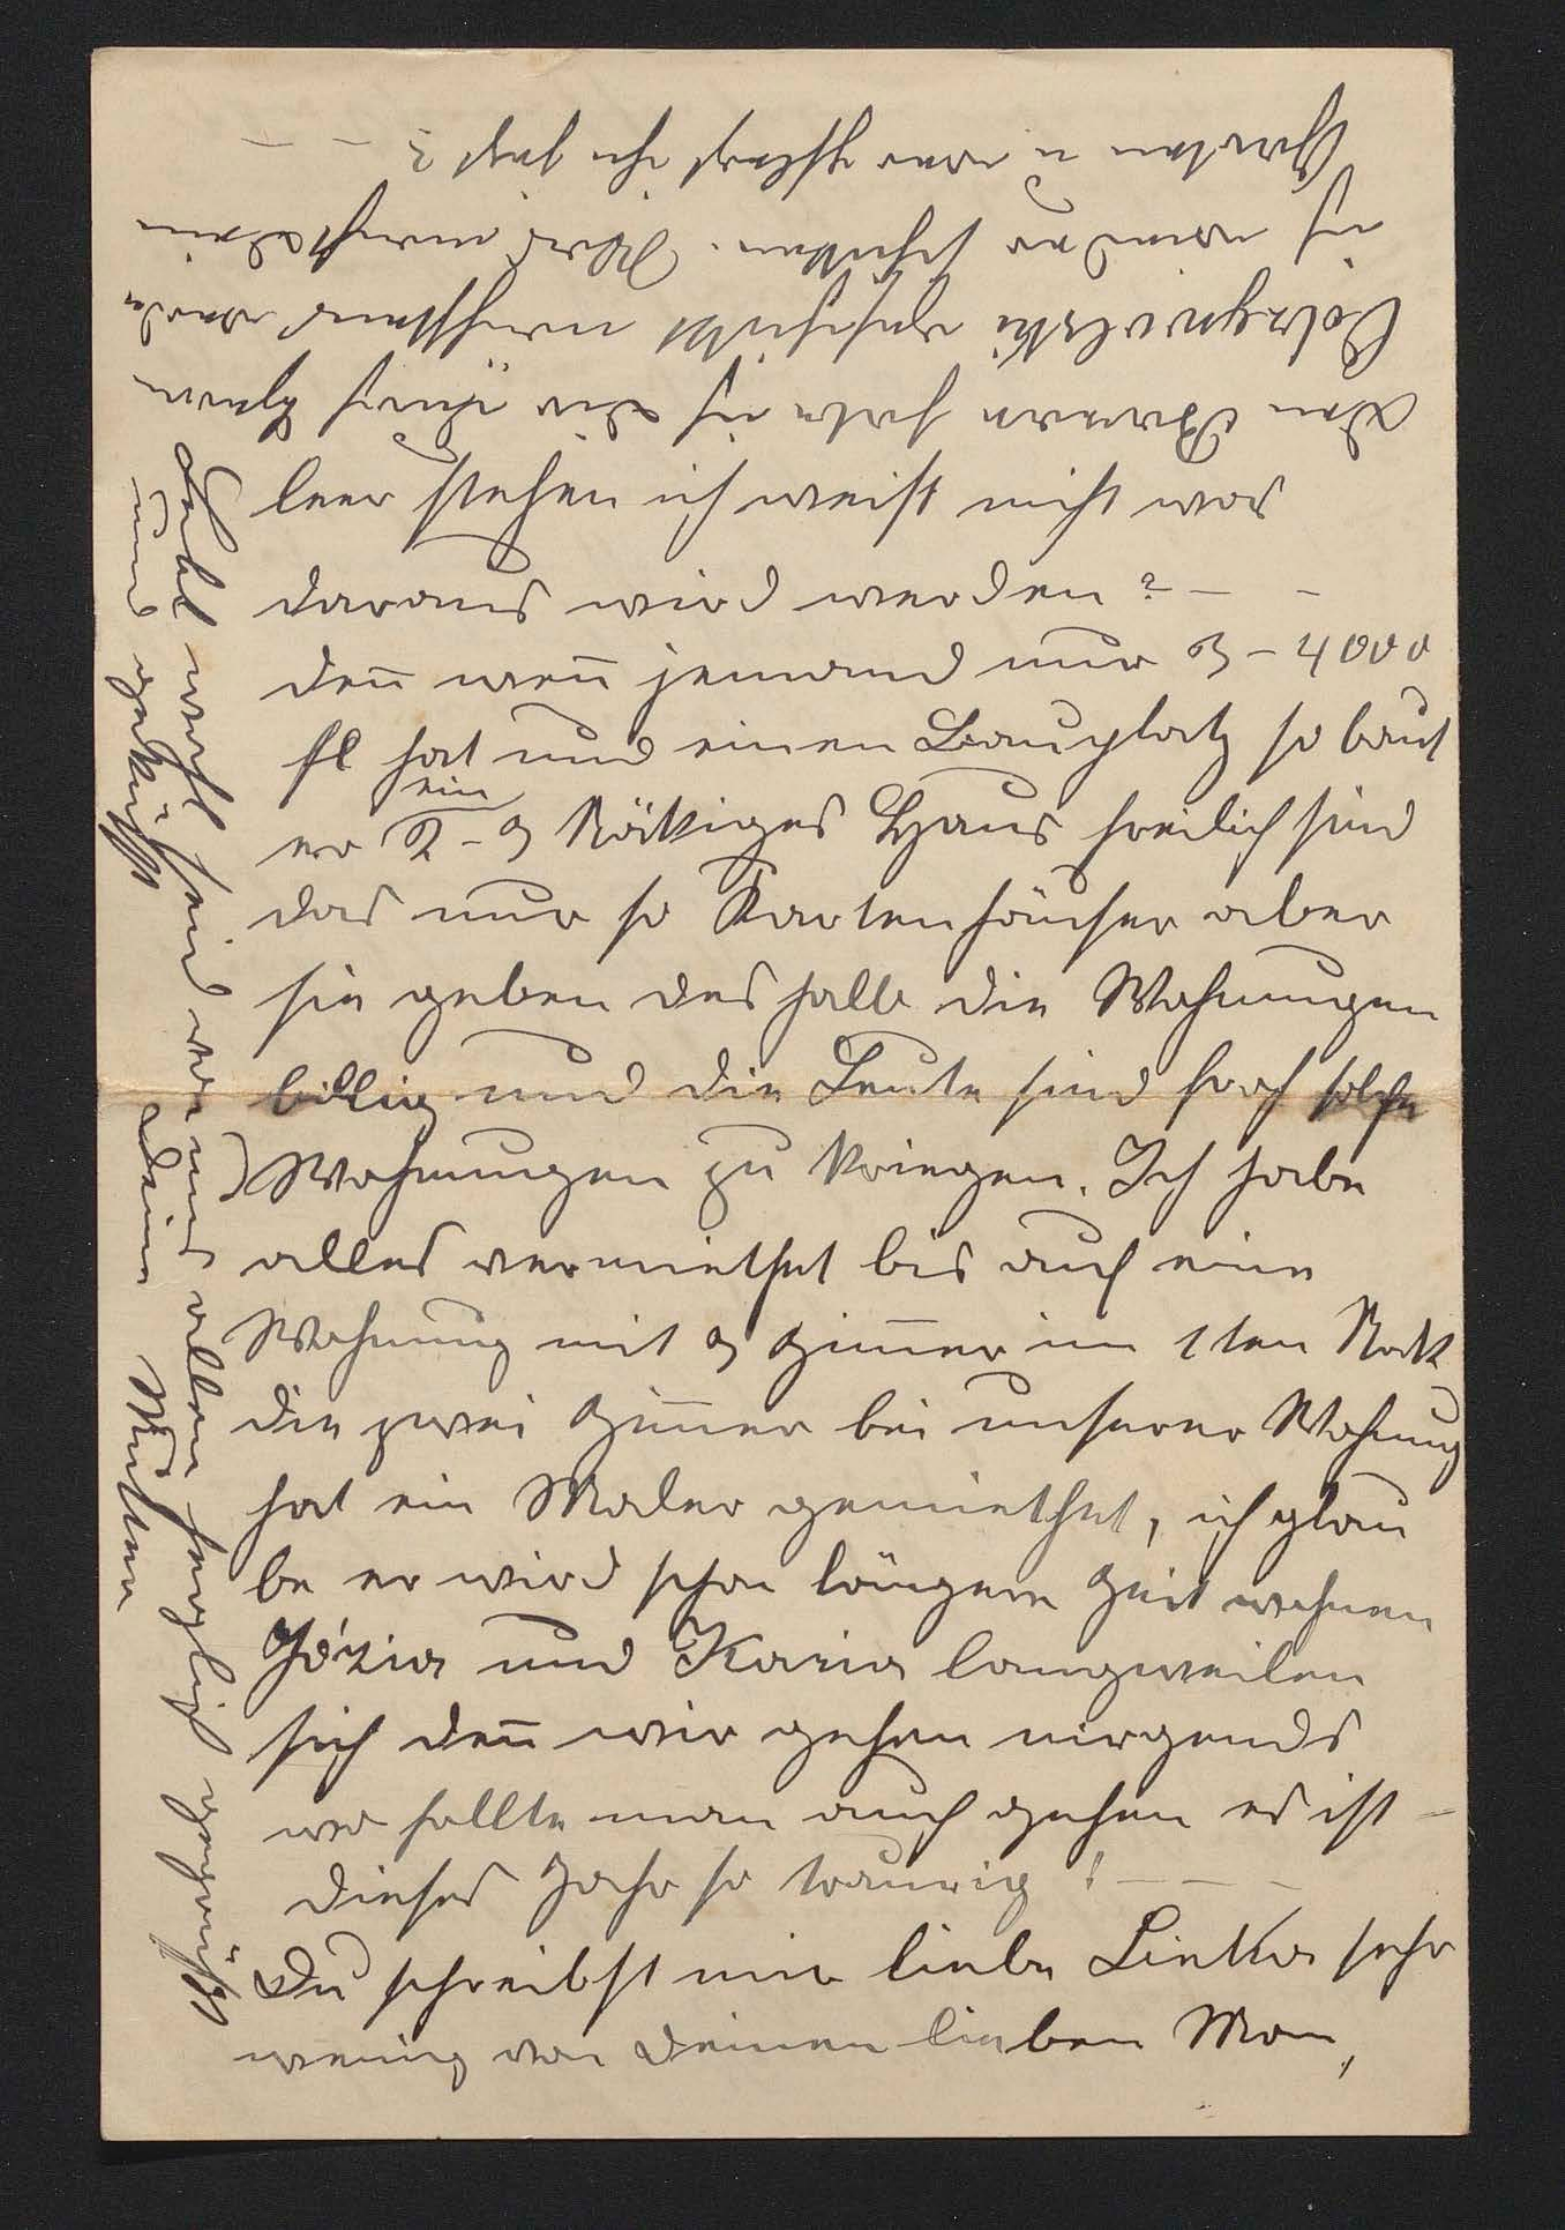 leer stehen ich weiß nicht was
daraus wird werden? – –
den̄ wen̄ jemand nur 3–4000
fl hat und einen Bauplatz so baut
er ein 2–3 stöckiges Haus freilich sind
das nur so Kartenhäuser aber
sie geben deshalb die Wohnungen
billig und die Leute sind froh solche
Wohnungen zu kriegen. Ich habe
alles vermiethet bis auf eine
Wohnung mit 3 Zim̄er im 1ten Stock
die zwei Zim̄er bei unserer Wohnung
hat ein Maler gemiethet, ich glau
be er wird schon längere Zeit wohnen
Józia und Kazia langweilen
sich den̄ wir gehen nirgends
wo sollte man auch gehen es ist –
dieses Jahr so traurig! – – –
Du schreibst mir liebe Linka sehr
wenig von deinen lieben Man,
den Brauen habe ich dir durch Herrn
geschickt nächstens werde
ich wieder schicken. Was macht dein
Garten u wer pflegt ihn jetzt? – – –
Lebet wohl seid von uns allen herzlich gegrüßt
und geküßt Deine Mutter